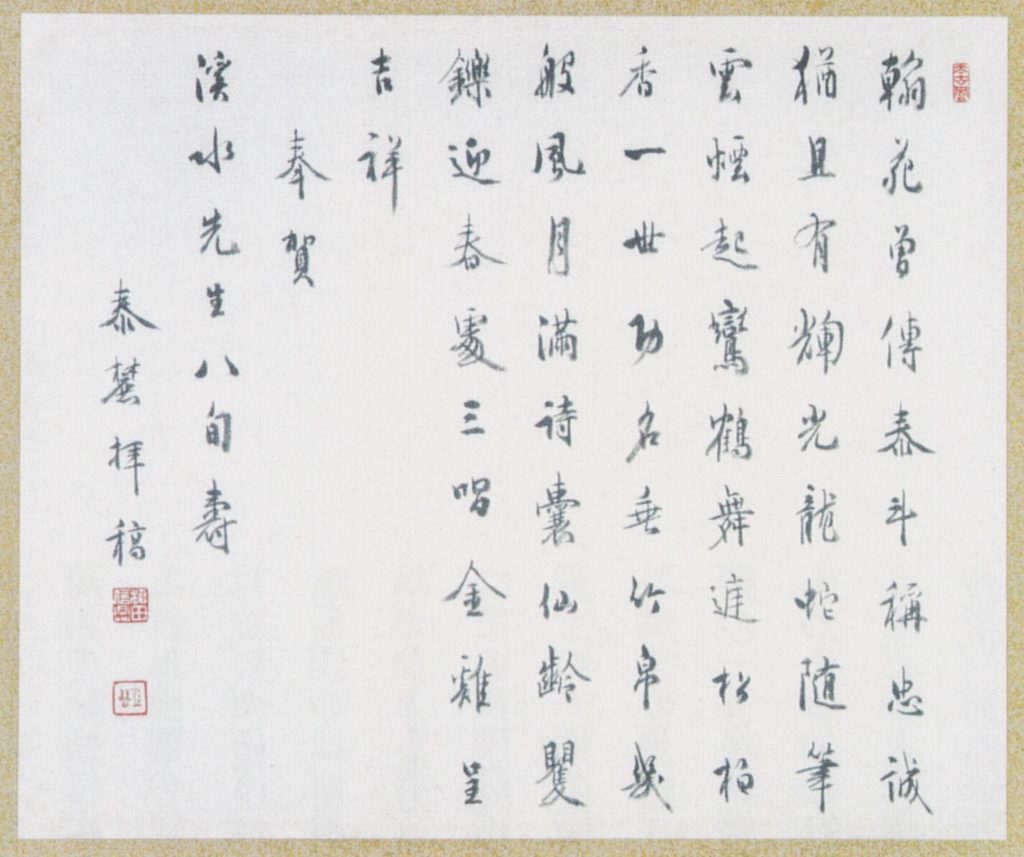 翰苑曾傳泰斗稱忠誠
猶且有輝光龍蛇随筆
雲煙起鸞鶴舞莚松柏
香一世功名垂竹帛幾
般風月滿詩囊仙齡矍
鑠迎春處三唱金雞呈
吉祥
奉賀
溪水先生八旬壽
泰拝稿